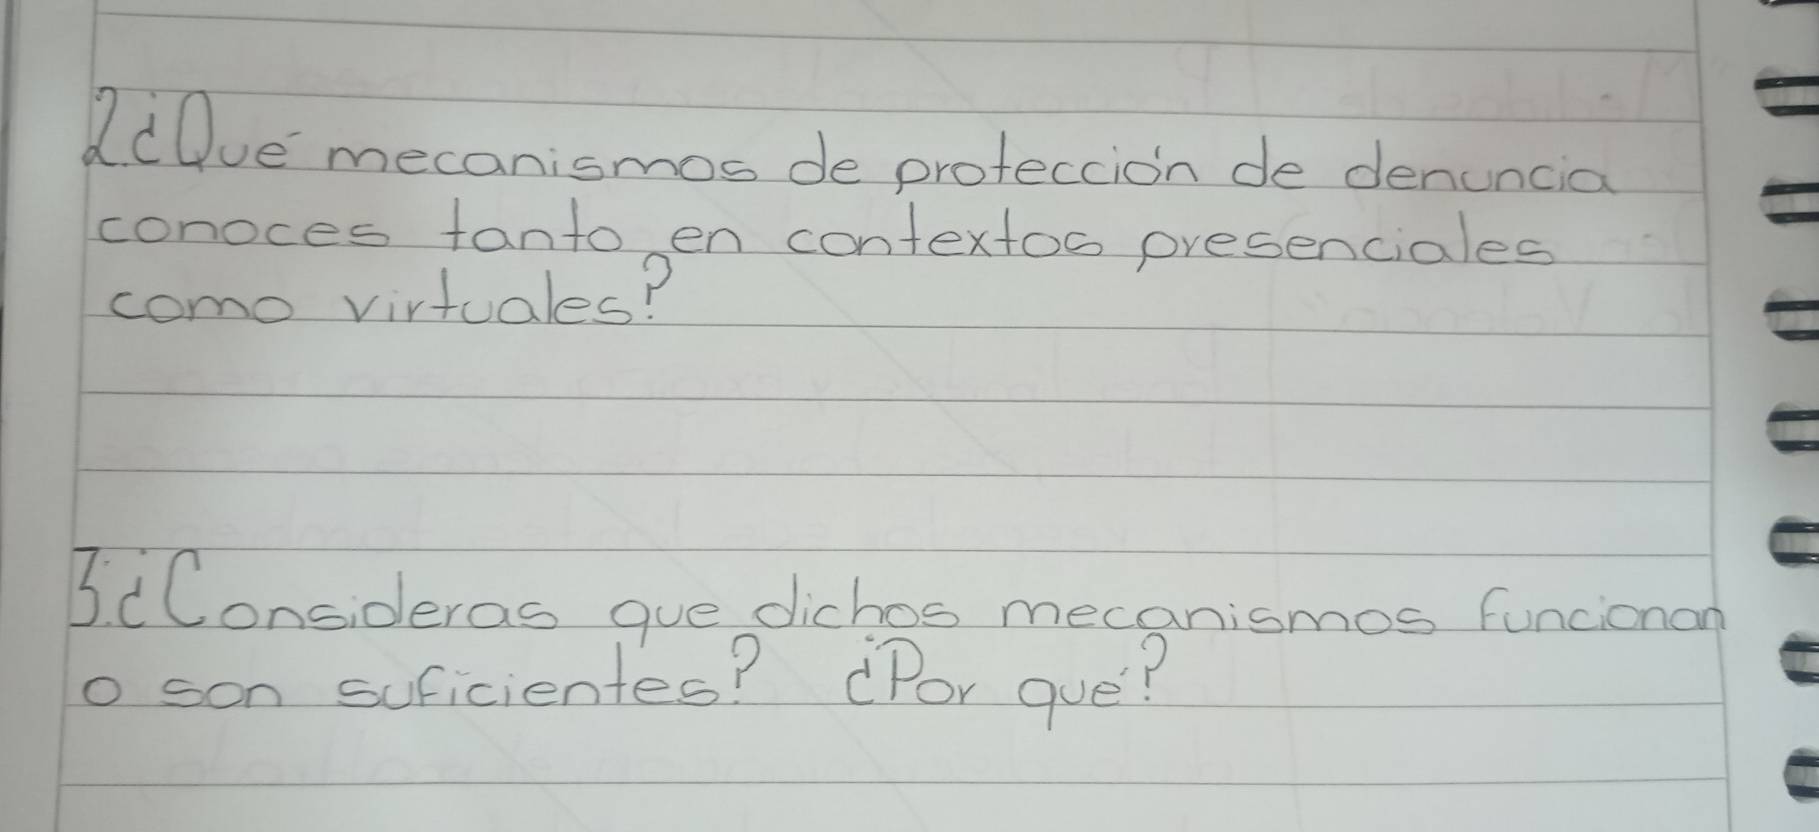 2.¿Qué mecanismos de protección de denuncia
conoces tanto en contextos presenciales
como virtuales?
3.¿Consideras que dichos mecanismos funcionan
o son suficientes? ¿Por qué?